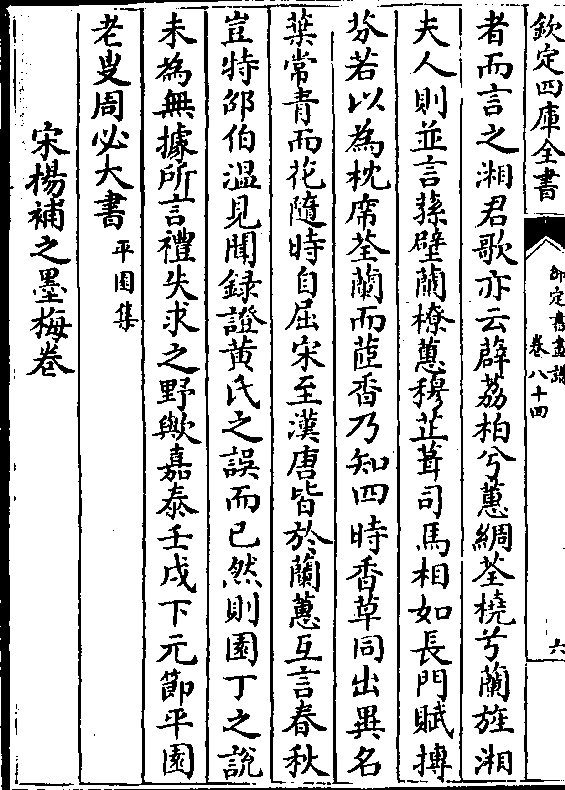 欽定四庫全書
御定書畫譜
卷八十四
六
者而言之湘君歌亦云薜荔柏兮蕙綢荃橈兮蘭旌湘
夫人則並言蓀壁蘭橑蕙櫋芷葺司馬相如長門賦摶
芬若以為枕席荃蘭而茝香乃知四時香草同出異名
葉常青而花隨時自屈宋至漢唐皆於蘭蕙互言春秋
豈特邵伯溫見聞録證黄氏之誤而已然則園丁之說
未為無據所言禮失求之野歟嘉泰壬戌下元節平園
老叟周必大書 平園集
宋楊補之墨梅卷